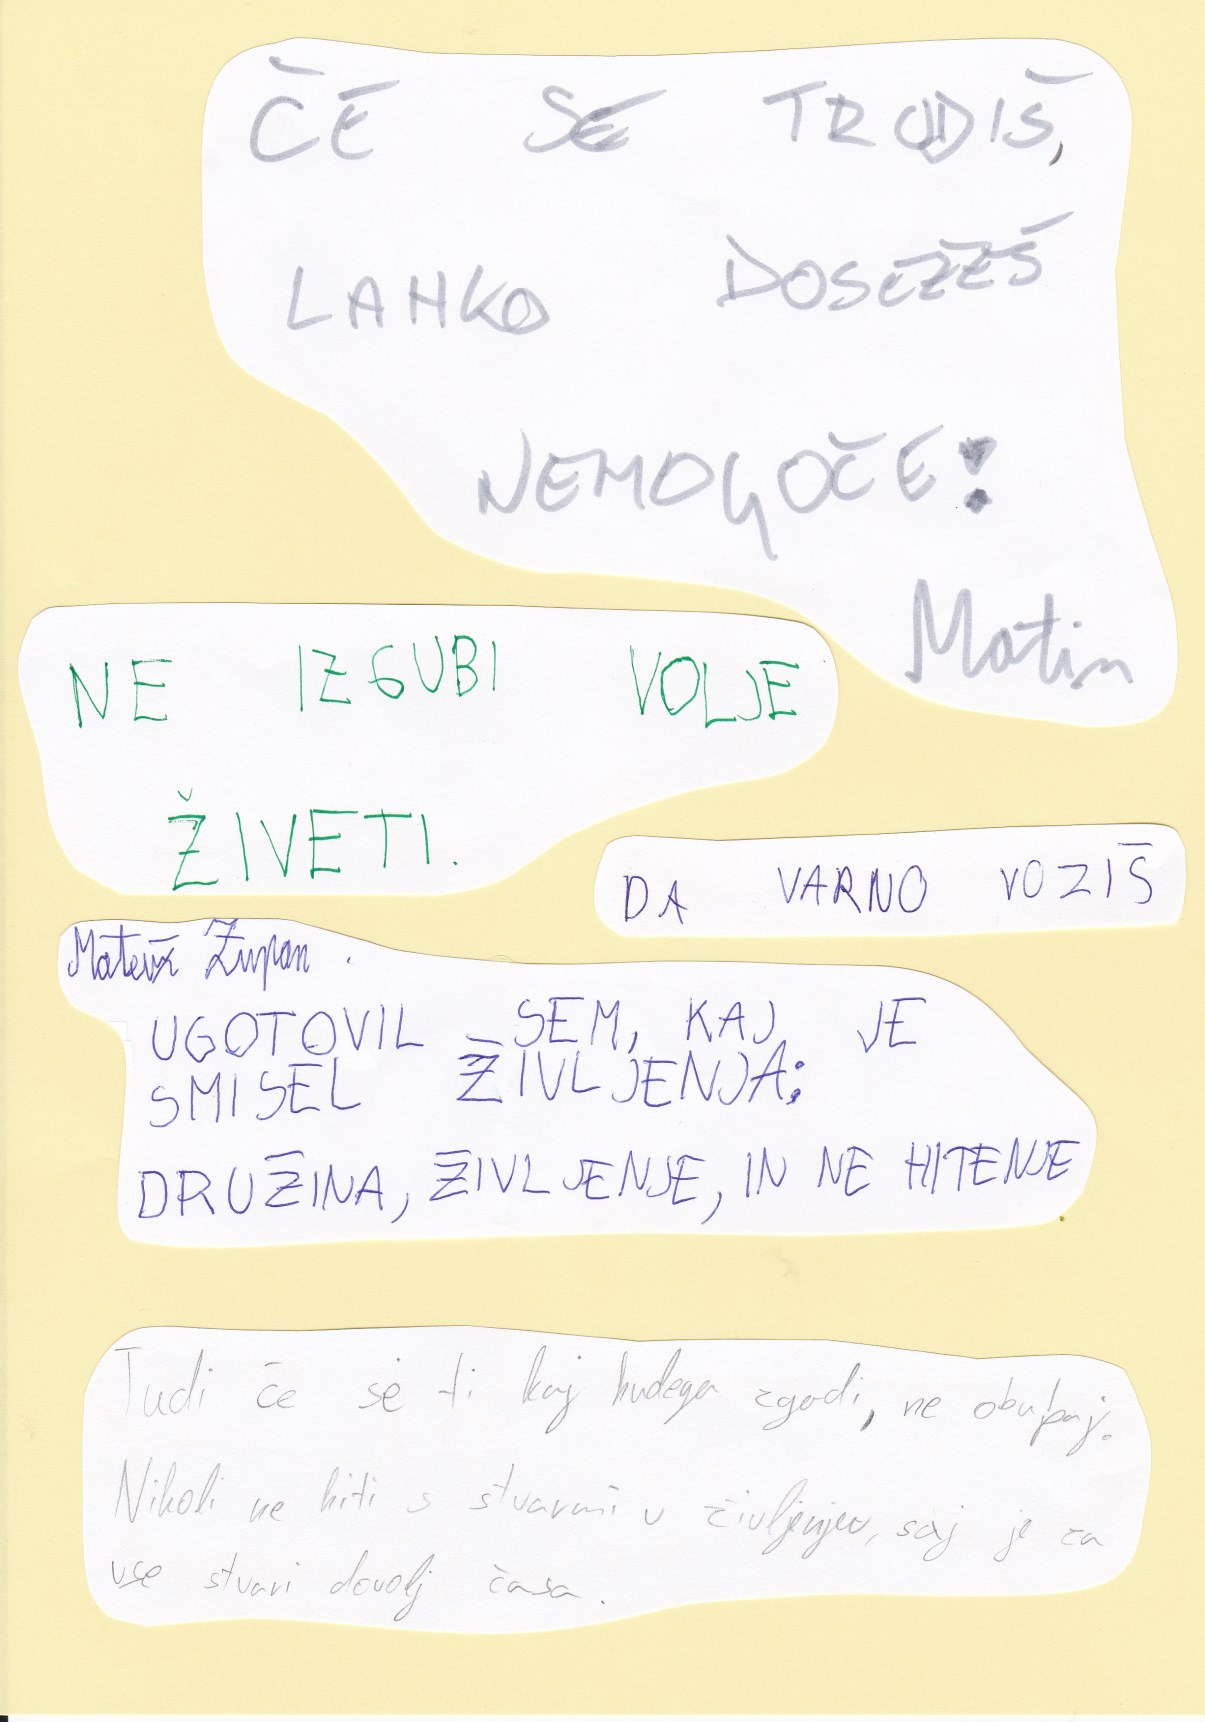 ČE SE TRUDIŠ,
LAHKO DOSEŽEŠ
NEMOGOČE!
Matin
NE IZGUBI VOLJE
ŽIVETI.
DA VARNO VOZIŠ
Matevž Župan.
UGOTOVIL SEM, KAJ JE
SMISEL ŽIVLJENJA:
DRUŽINA, ŽIVLJENJE, IN NE HITENJE
Tudi če se ti kaj hudega zgodi, ne obupaj.
Nikoli ne hiti s stvarmi v življenjev, saj je za
vse stvari dovolj časa.